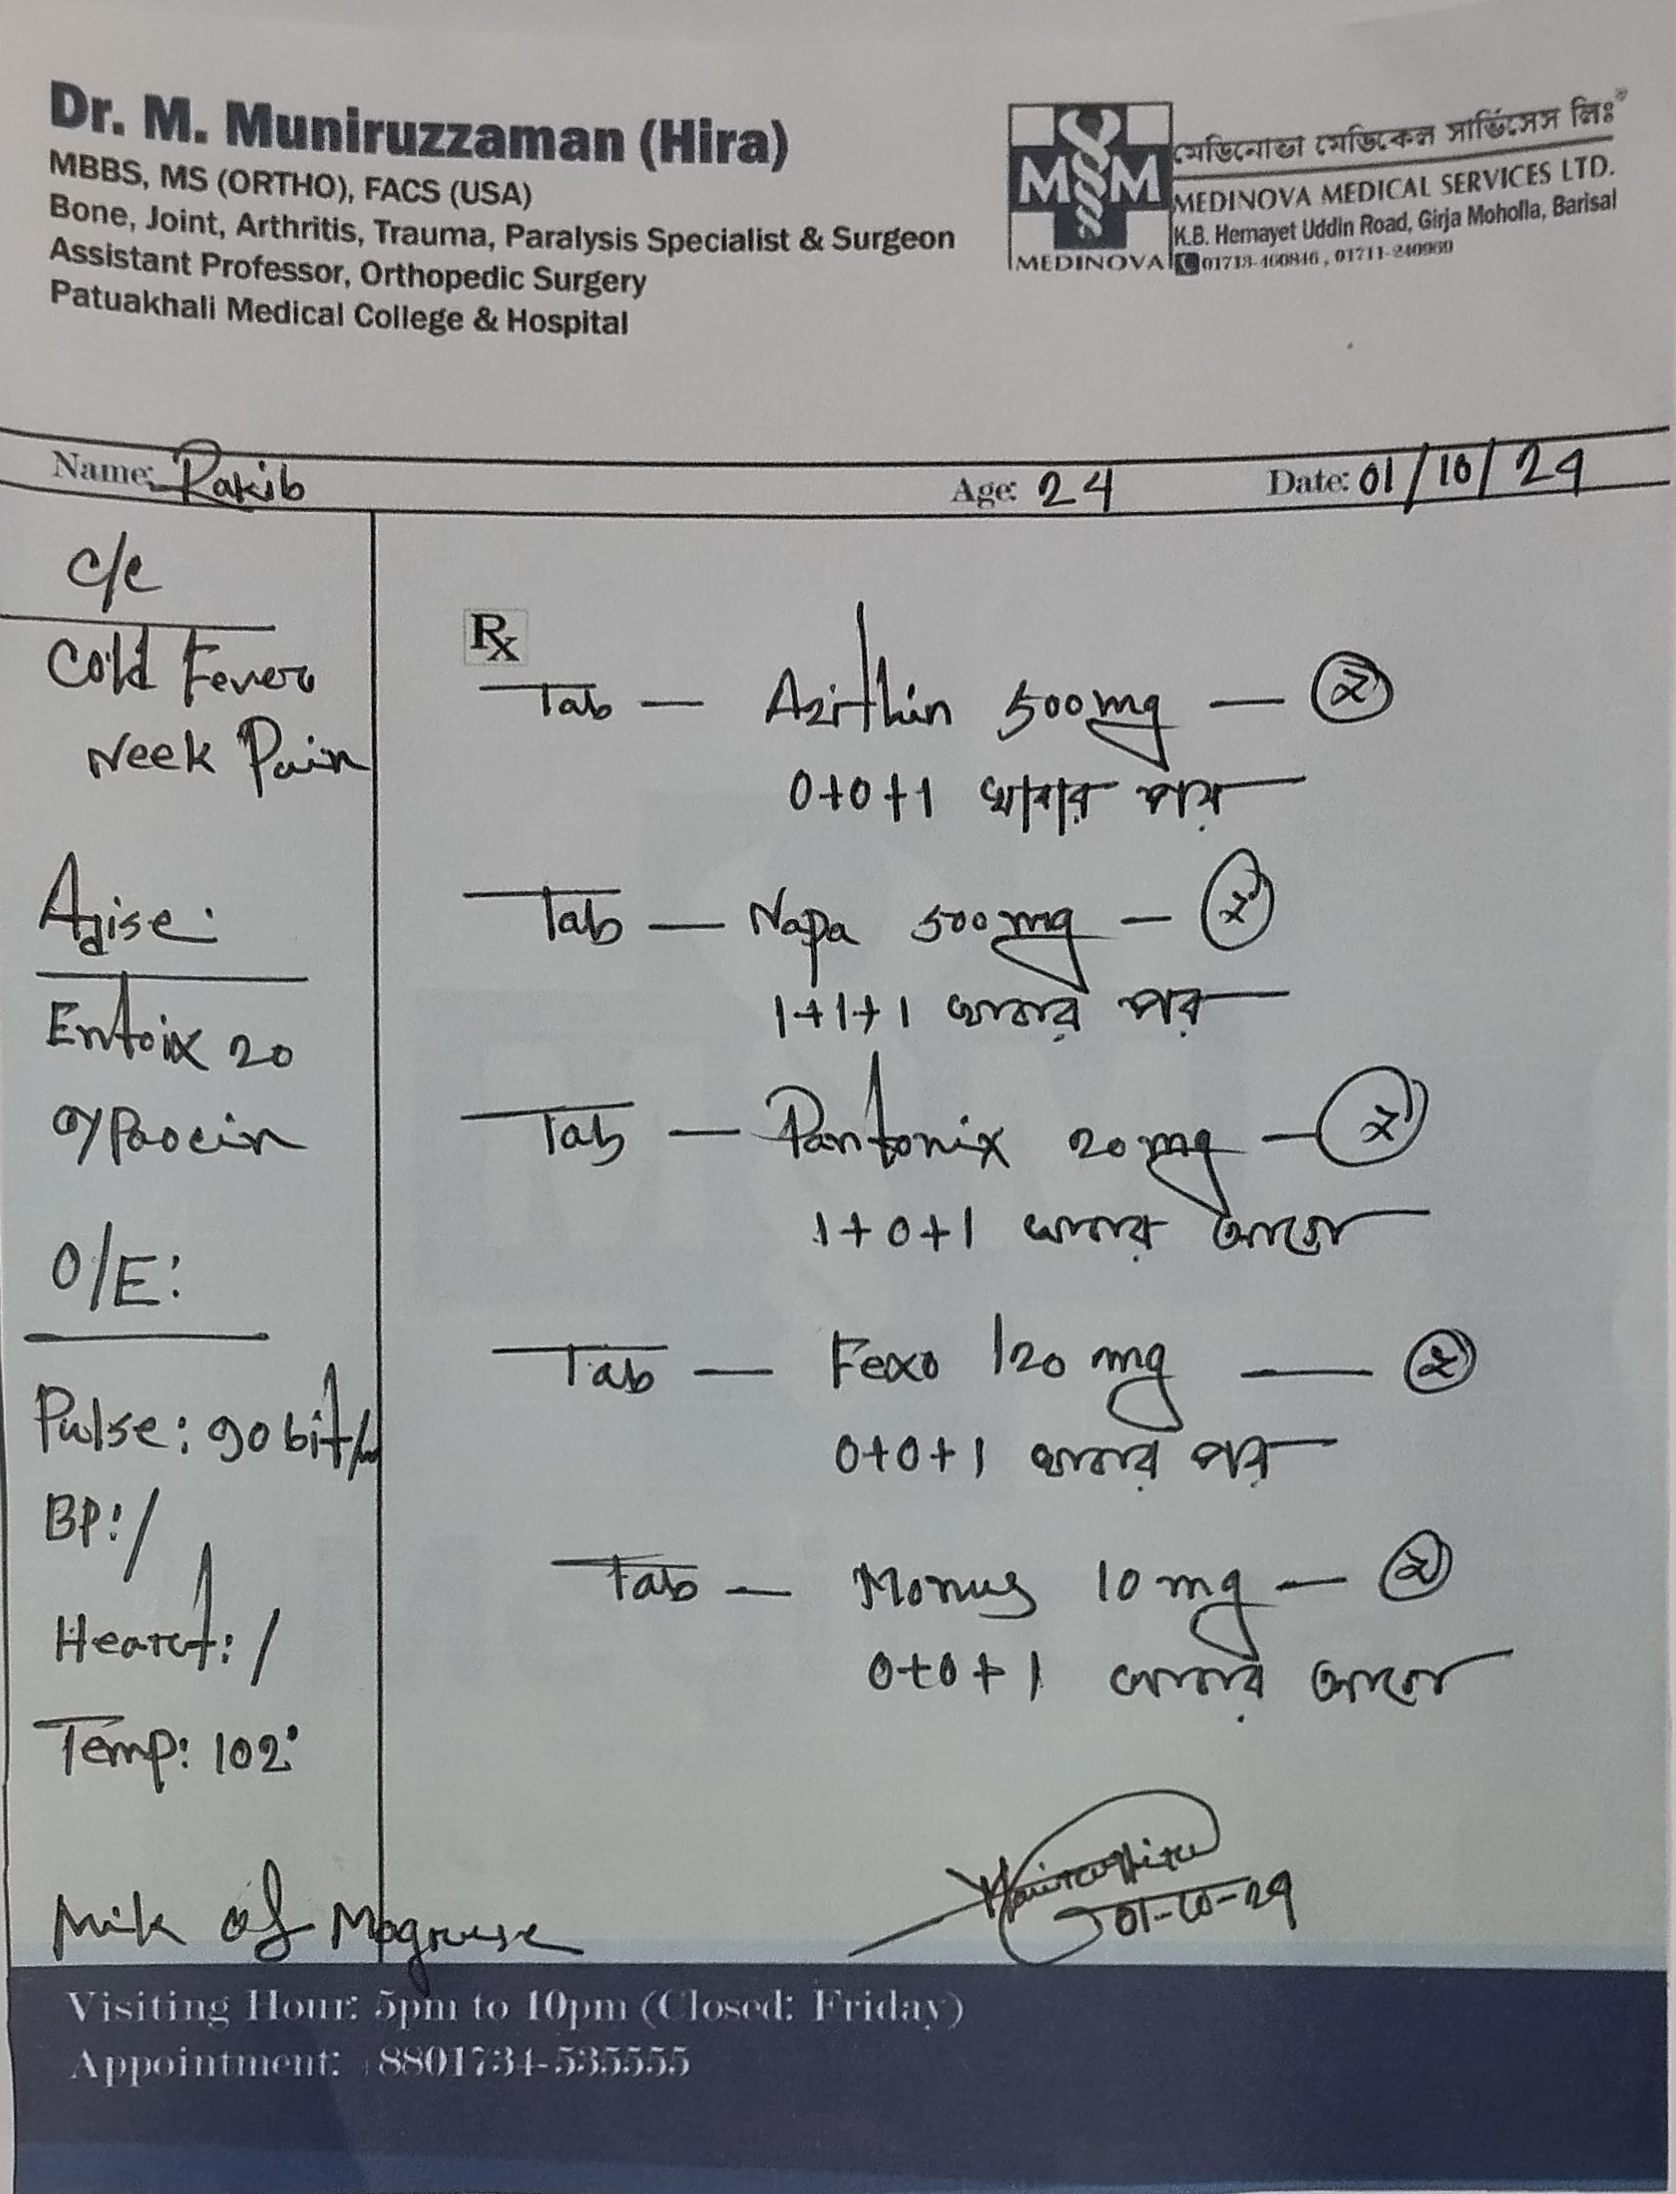 Dr. M. Muniruzzaman (Hira)
MBBS, MS (ORTHO), FACS (USA)
Bone, Joint, Arthritis, Trauma, Paralysis Specialist & Surgeon
Assistant Professor, Orthopedic Surgery
Patuakhali Medical College & Hospital
মেডিনোভা মেডিকেল সার্ভিসেস লিঃ
MSM MEDINOVA MEDICAL SERVICES LTD.
K.B. Hemayet Uddin Road, Girja Moholla, Barisal
MEDINOVA 01713-460846, 01711-240960
Name: Rakib Age: 24 Date: 01/10/24
c/c
Cold Fever
Neek Pain
Agise:
Entoix 20
O/E:
Pulse: 90 bit/
BP: /
Heart: /
Temp: 102°
Mik of
Rx
Tab — Azithin 500mg —
0+0+1 খাবার পর
Tab — Napa 500mg —
1+1+1 খাবার পর
Tab — Pantonix 20mg —
1+0+1 খাবার আগে
Tab — Fexo 120 mg —
0+0+1 খাবার পর
Tab — Monus 10mg —
0+0+1 খাবার আগে
01-10-24
Visiting Hour: 5pm to 10pm (Closed: Friday)
Appointment: 8801734-535555